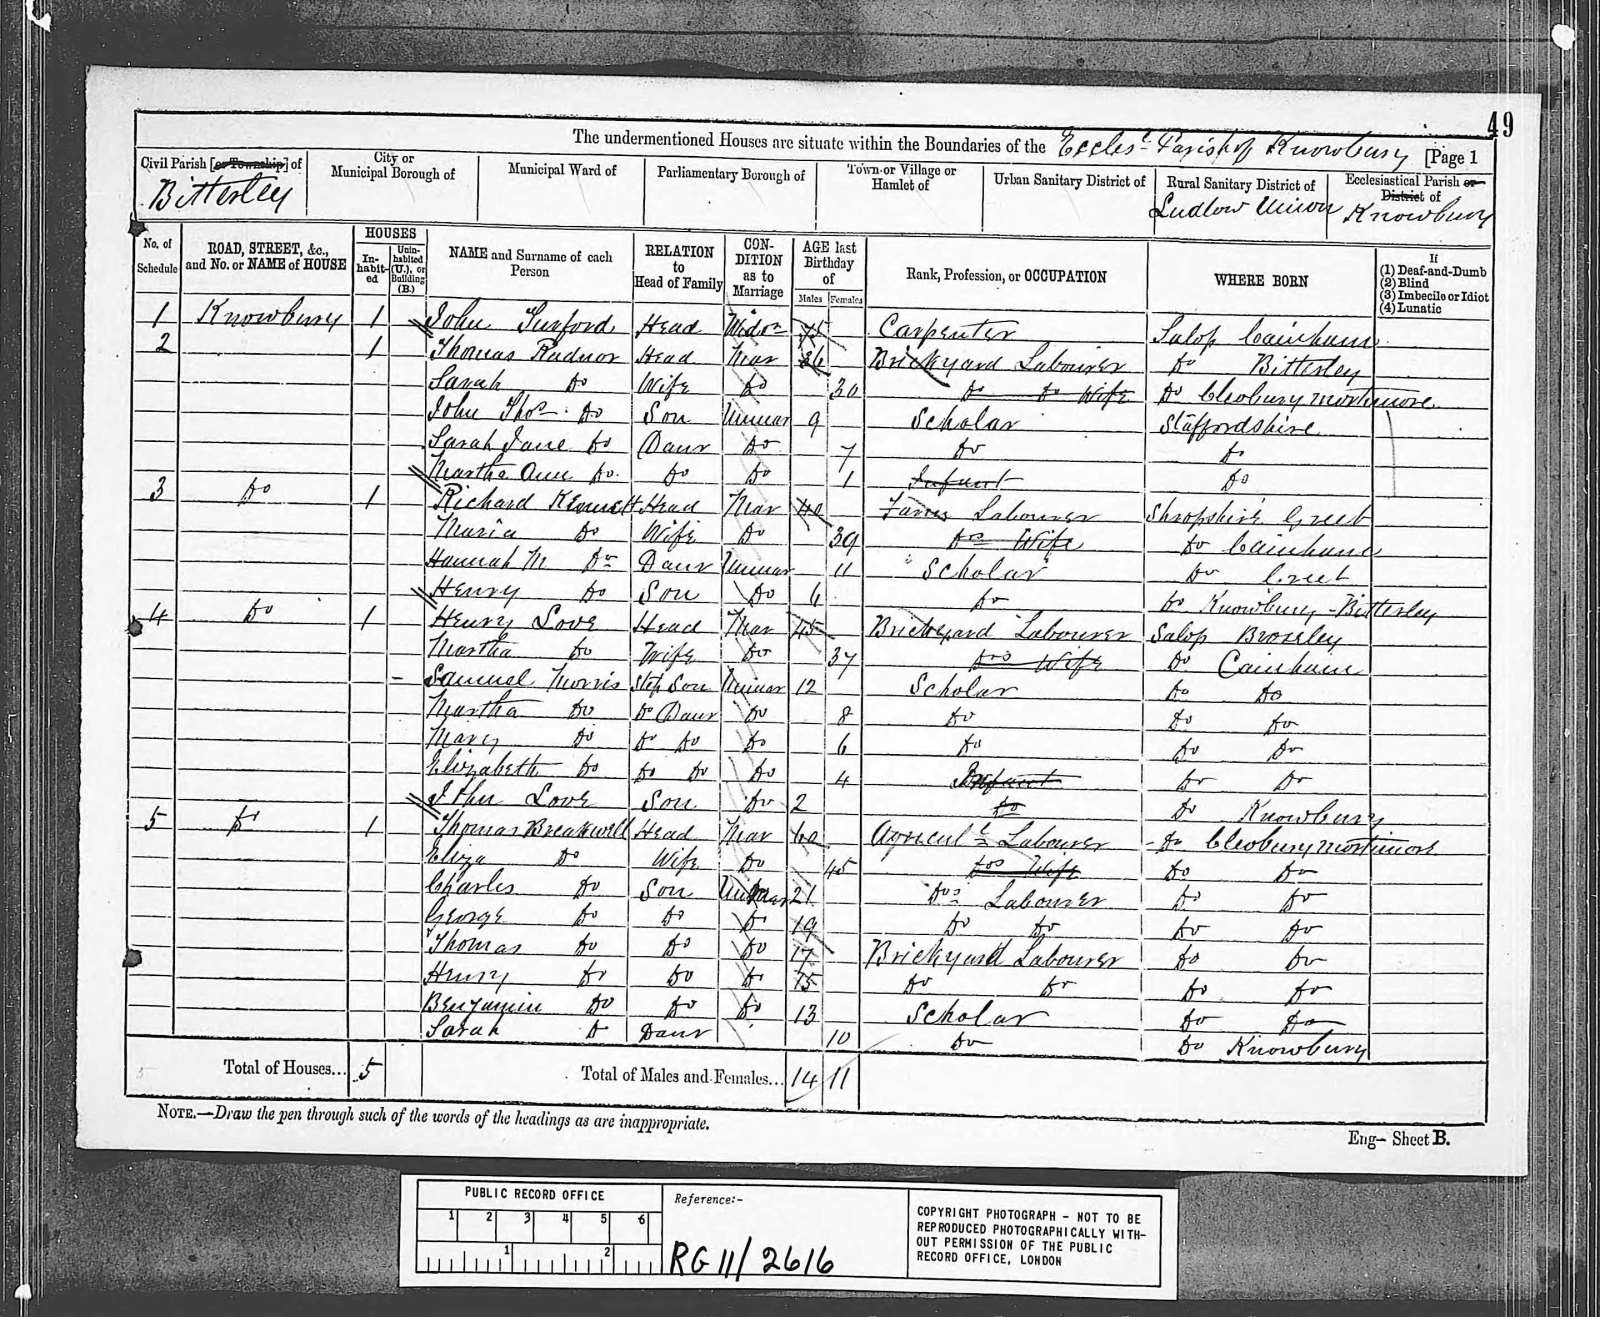 49
The undermentioned Houses are situate within the Boundaries of the Eccles^l Parish of Knowbury [Page 1
Civil Parish [or Township] of Bitterley
City or Municipal Borough of
Municipal Ward of
Parliamentary Borough of
Town or Village or Hamlet of
Urban Sanitary District of
Rural Sanitary District of Ludlow Union
Ecclesiastical Parish or District of Knowbury
No. of Schedule
ROAD, STREET, &c., and No. or NAME of HOUSE
HOUSES
In-habit-ed
Unin-habited (U.), or Building (B.)
NAME and Surname of each Person
RELATION to Head of Family
CON-DITION as to Marriage
AGE last Birthday of
Males Females
Rank, Profession, or OCCUPATION
WHERE BORN
If
(1) Deaf-and-Dumb
(2) Blind
(3) Imbecile or Idiot
(4) Lunatic
1 Knowbury 1 John Head Widr 75 Carpenter Salop Cainham
2 1 Thomas Radnor Head Mar 36 Brickyard Labourer Do Bitterley
Sarah Do Wife Do 30 Do Do Wife Do Cleobury Mortimore
John Thos. Do Son Unmar 9 Scholar Staffordshire
Sarah Jane Do Daur Do 7 Do Do
Martha Ann Do. Do Do 1 Infant Do
3 Do 1 Richard Head Mar 40 Farm Labourer Shropshire Greet
Maria Do Wife Do 39 Dos Wife Do Cainham
Hannah M Do Daur Unmar 11 Scholar Do Greet
Henry Do Son Do 6 Do Do Knowbury - Bitterley
4 Do 1 Henry Love Head Mar 45 Brickyard Labourer Salop Broseley
Martha Do Wife Do 37 Dos Wife Do Cainham
Samuel Morris Step Son Unmar 12 Scholar Do Do
Martha Do Do Daur Do 8 Do Do Do
Mary Do Do Do Do 6 Do Do Do
Elizabeth Do Do Do Do 4 Infant Do Do
John Love Son Do 2 Do Do Knowbury
5 Do 1 Thomas Breakwell Head Mar 60 Agricul^l Labourer Do Cleobury Mortimore
Eliza Do Wife Do 45 Dos Wife Do Do
Charles Do Son Unmar 21 Dos Labourer Do Do
George Do Do Do 19 Do Do Do Do
Thomas Do Do Do 17 Brickyard Labourer Do Do
Henry Do Do Do 15 Do Do Do Do
Benjamin Do Do Do 13 Scholar Do Do
Sarah Do Daur 10 Do Do Knowbury
Total of Houses... 5 Total of Males and Females... 14 11
NOTE.—Draw the pen through such of the words of the headings as are inappropriate.
Eng– Sheet B.
PUBLIC RECORD OFFICE
1 2 3 4 5 6
1 2
Reference:-
RG 11/2616
COPYRIGHT PHOTOGRAPH - NOT TO BE
REPRODUCED PHOTOGRAPHICALLY WITH-
OUT PERMISSION OF THE PUBLIC
RECORD OFFICE, LONDON